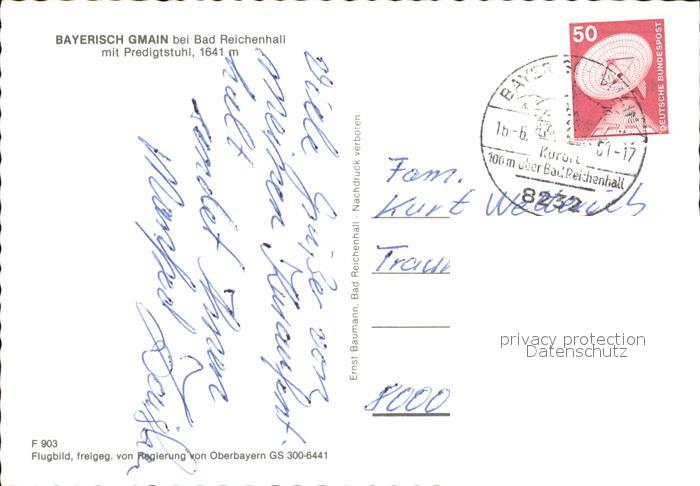 BAYERISCH GMAIN bei Bad Reichenhall
mit Predigtstuhl, 1641 m
Viele Grüße von
meinem Kuraufent-
halt
sendet Ihnen
Manfred
Ernst Baumann, Bad Reichenhall · Nachdruck verboten
50
DEUTSCHE BUNDESPOST
BAYER
16-6. 81-17
Kurort
100m über Bad Reichenhall
8232
Fam.
Kurt
Traun
8000
privacy protection
Datenschutz
F 903
Flugbild, freigeg. von Regierung von Oberbayern GS 300-6441